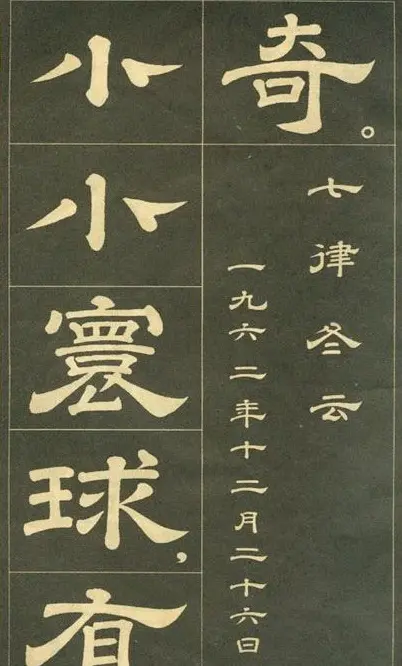 奇。
七律 冬云
一九六二年十二月二十六日
小小寰球，有